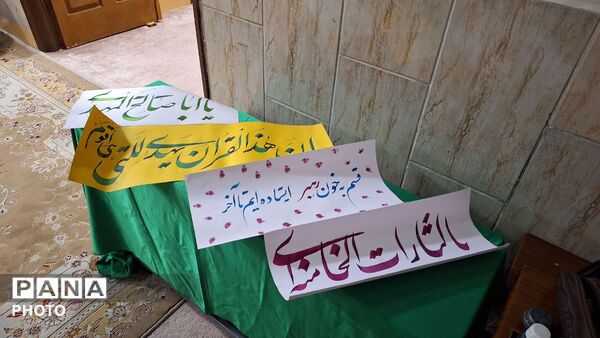 یا ابا صالح المهدی
ان هذا القرآن یهدی للتی هی اقوم
قسم به خون رهبر ایستاده ایم تا آخر
یا لثارات الخامنه ای
PANA
PHOTO